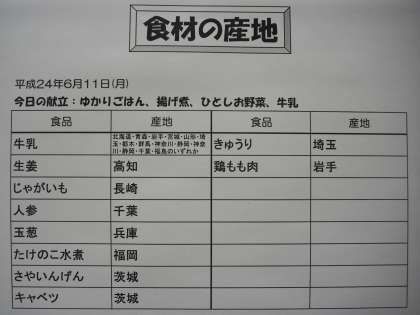 食材の産地
平成24年6月11日(月)
今日の献立:ゆかりごはん、揚げ煮、ひとしお野菜、牛乳
食品 産地 食品 産地
牛乳 北海道・青森・岩手・宮城・山形・埼玉・栃木・群馬・神奈川・静岡・神奈川・静岡・千葉・福島のいずれか きゅうり 埼玉
生姜 高知 鶏もも肉 岩手
じゃがいも 長崎
人参 千葉
玉葱 兵庫
たけのこ水煮 福岡
さやいんげん 茨城
キャベツ 茨城